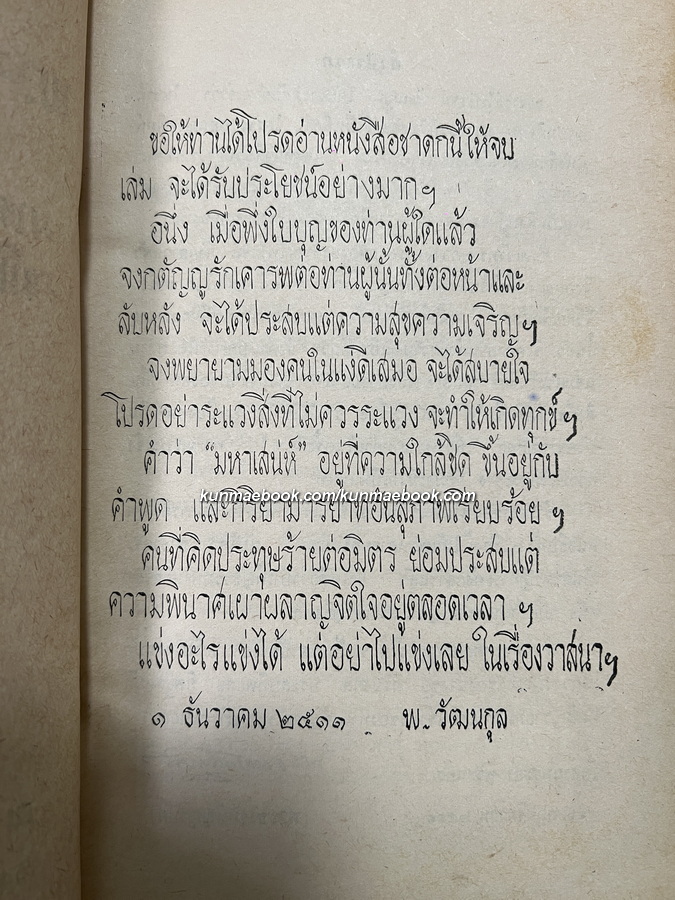 ขอให้ท่านได้โปรดอ่านหนังสือชาดกนี้ให้จบ
เล่ม จะได้รับประโยชน์อย่างมากๆ
อนึ่ง เมื่อพึ่งใบบุญของท่านผู้ใดแล้ว
จงกตัญญูรักเคารพต่อท่านผู้นั้นทั้งต่อหน้าและ
ลับหลัง จะได้ประสบแต่ความสุขความเจริญๆ
จงพยายามมองคนในแง่ดีเสมอ จะได้สบายใจ
โปรดอย่าระแวงสิ่งที่ไม่ควรระแวง จะทำให้เกิดทุกข์ๆ
คำว่า "มหาเสน่ห์" อยู่ที่ความใกล้ชิด ขึ้นอยู่กับ
kunmaebook.com/kunmaebook.com
คำพูด และกิริยามารยาทอันสุภาพเรียบร้อย ๆ
คนที่คิดประทุษร้ายต่อมิตร ย่อมประสบแต่
ความพินาศเผาผลาญจิตใจอยู่ตลอดเวลา ๆ
แข่งอะไรแข่งได้ แต่อย่าไปแข่งเลย ในเรื่องวาสนาๆ
๑ ธันวาคม ๒๕๑๑ พ. วัฒนกุล